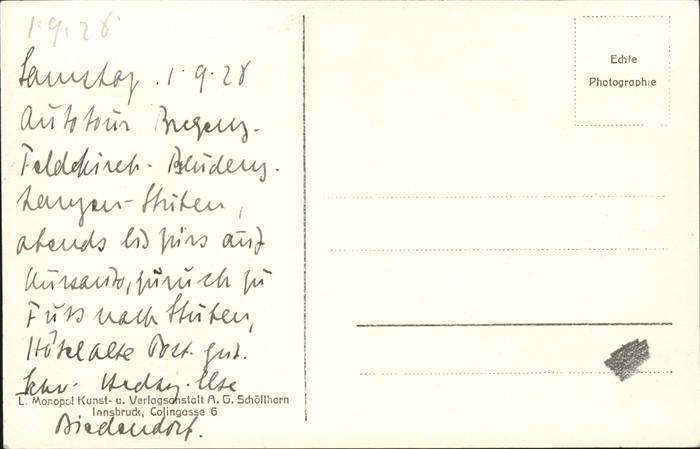 1.9.28
Samstag . 1.9.28
Autotour Bregenz-
Feldkirch- Bludenz.
Langen- Stuben,
abends bis Zürs auf
Kursauto, zurück zu
Fuss nach Stuben,
Hôtel alte Post. gut.
Hedwig. Ilse
Biedendorf.
L. Monopol Kunst- u. Verlagsanstalt A. G. Schöllhorn
Innsbruck, Colingasse 6
Echte
Photographie